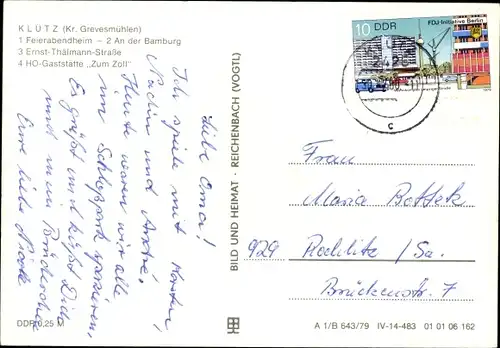 KLÜTZ (Kr. Grevesmühlen)
1 Feierabendheim – 2 An der Bamburg
3 Ernst-Thälmann-Straße
4 HO-Gaststätte „Zum Zoll"
Liebe Oma!
Ich spiele mit Karsten,
Nadin und André.
Heute waren wir alle
im Schloßpark spazieren,
Es grüßt und küßt Dich
und mein Brüderchen
Eure liebe Nicole
DDR 0,25 M
BILD UND HEIMAT · REICHENBACH (VOGTL)
10 DDR
FDJ-Initiative Berlin
242
c
Frau
Maria
929 Rochlitz / Sa.
Brückenstr. 7
A 1/B 643/79 IV-14-483 01 01 06 162